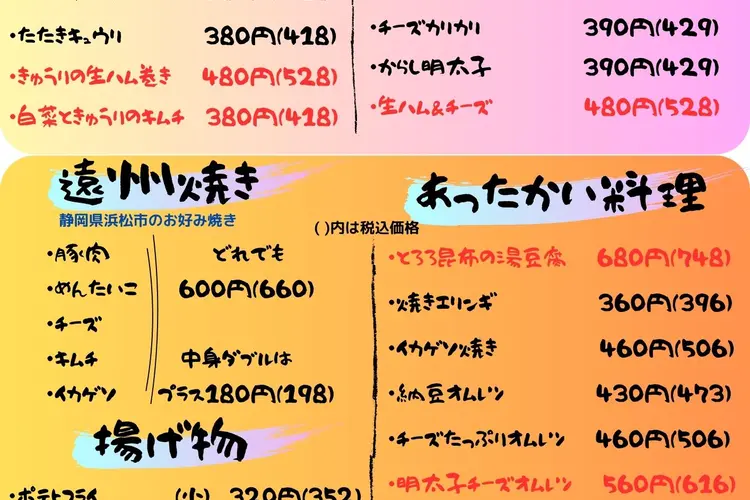 ・たたきキュウリ 380円(418)
・きゅうりの生ハム巻き 480円(528)
・白菜ときゅうりのキムチ 380円(418)
・チーズカリカリ 390円(429)
・からし明太子 390円(429)
・生ハム&チーズ 480円(528)
遠州焼き
静岡県浜松市のお好み焼き
・豚肉
・めんたいこ
・チーズ
・キムチ
・イカゲソ
どれでも
600円(660)
中身ダブルは
プラス180円(198)
揚げ物
・ポテトフライ (小) 320円(352)
あったかい料理
( )内は税込価格
・とろろ昆布の湯豆腐 680円(748)
・焼きエリンギ 360円(396)
・イカゲソ焼き 460円(506)
・納豆オムレツ 430円(473)
・チーズたっぷりオムレツ 460円(506)
・明太子チーズオムレツ 560円(616)